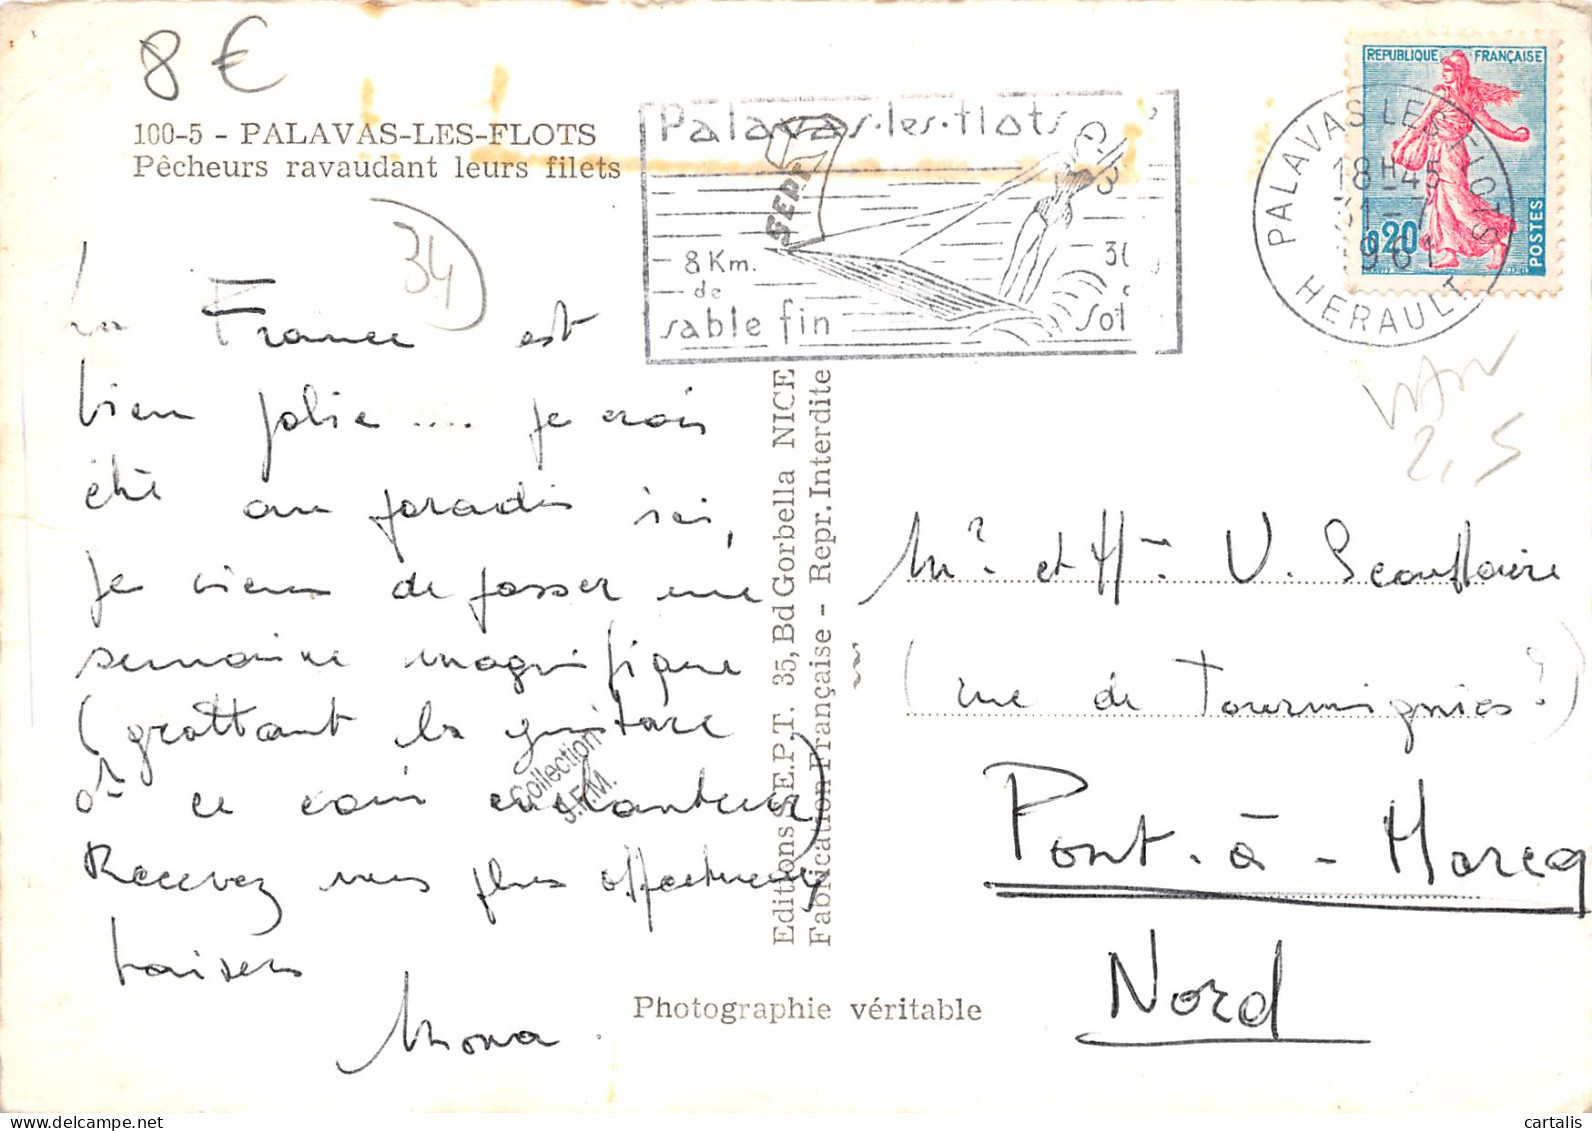 8 €
100-5 - PALAVAS-LES-FLOTS
Pêcheurs ravaudant leurs filets
34
La France est
bien jolie .... je crois
été au paradis ici,
Je viens de passer une
semaine magnifique
(grattant la guitare
ds ce coin enchanteur)
Recevez mes plus affectueux
baisers
Mona.
Collection
J.F.M.
Editions S.E.P.T. 35, Bd Gorbella NICE
Fabrication Française - Repr. Interdite
Photographie véritable
Palavas-les-flots
SEPT
8 Km.
de
sable fin
Sol
REPUBLIQUE FRANÇAISE
0,20
POSTES
PALAVAS LES FLOTS
18H-45
31-7
1961
HERAULT
2,5
Mr et Mme V. Scouflaire
(rue de Tourmignies?)
Pont-à-Marcq
Nord
cartalis